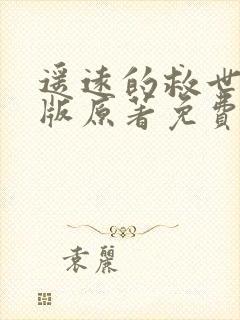 遥远的救世
版原著免费
袁丽